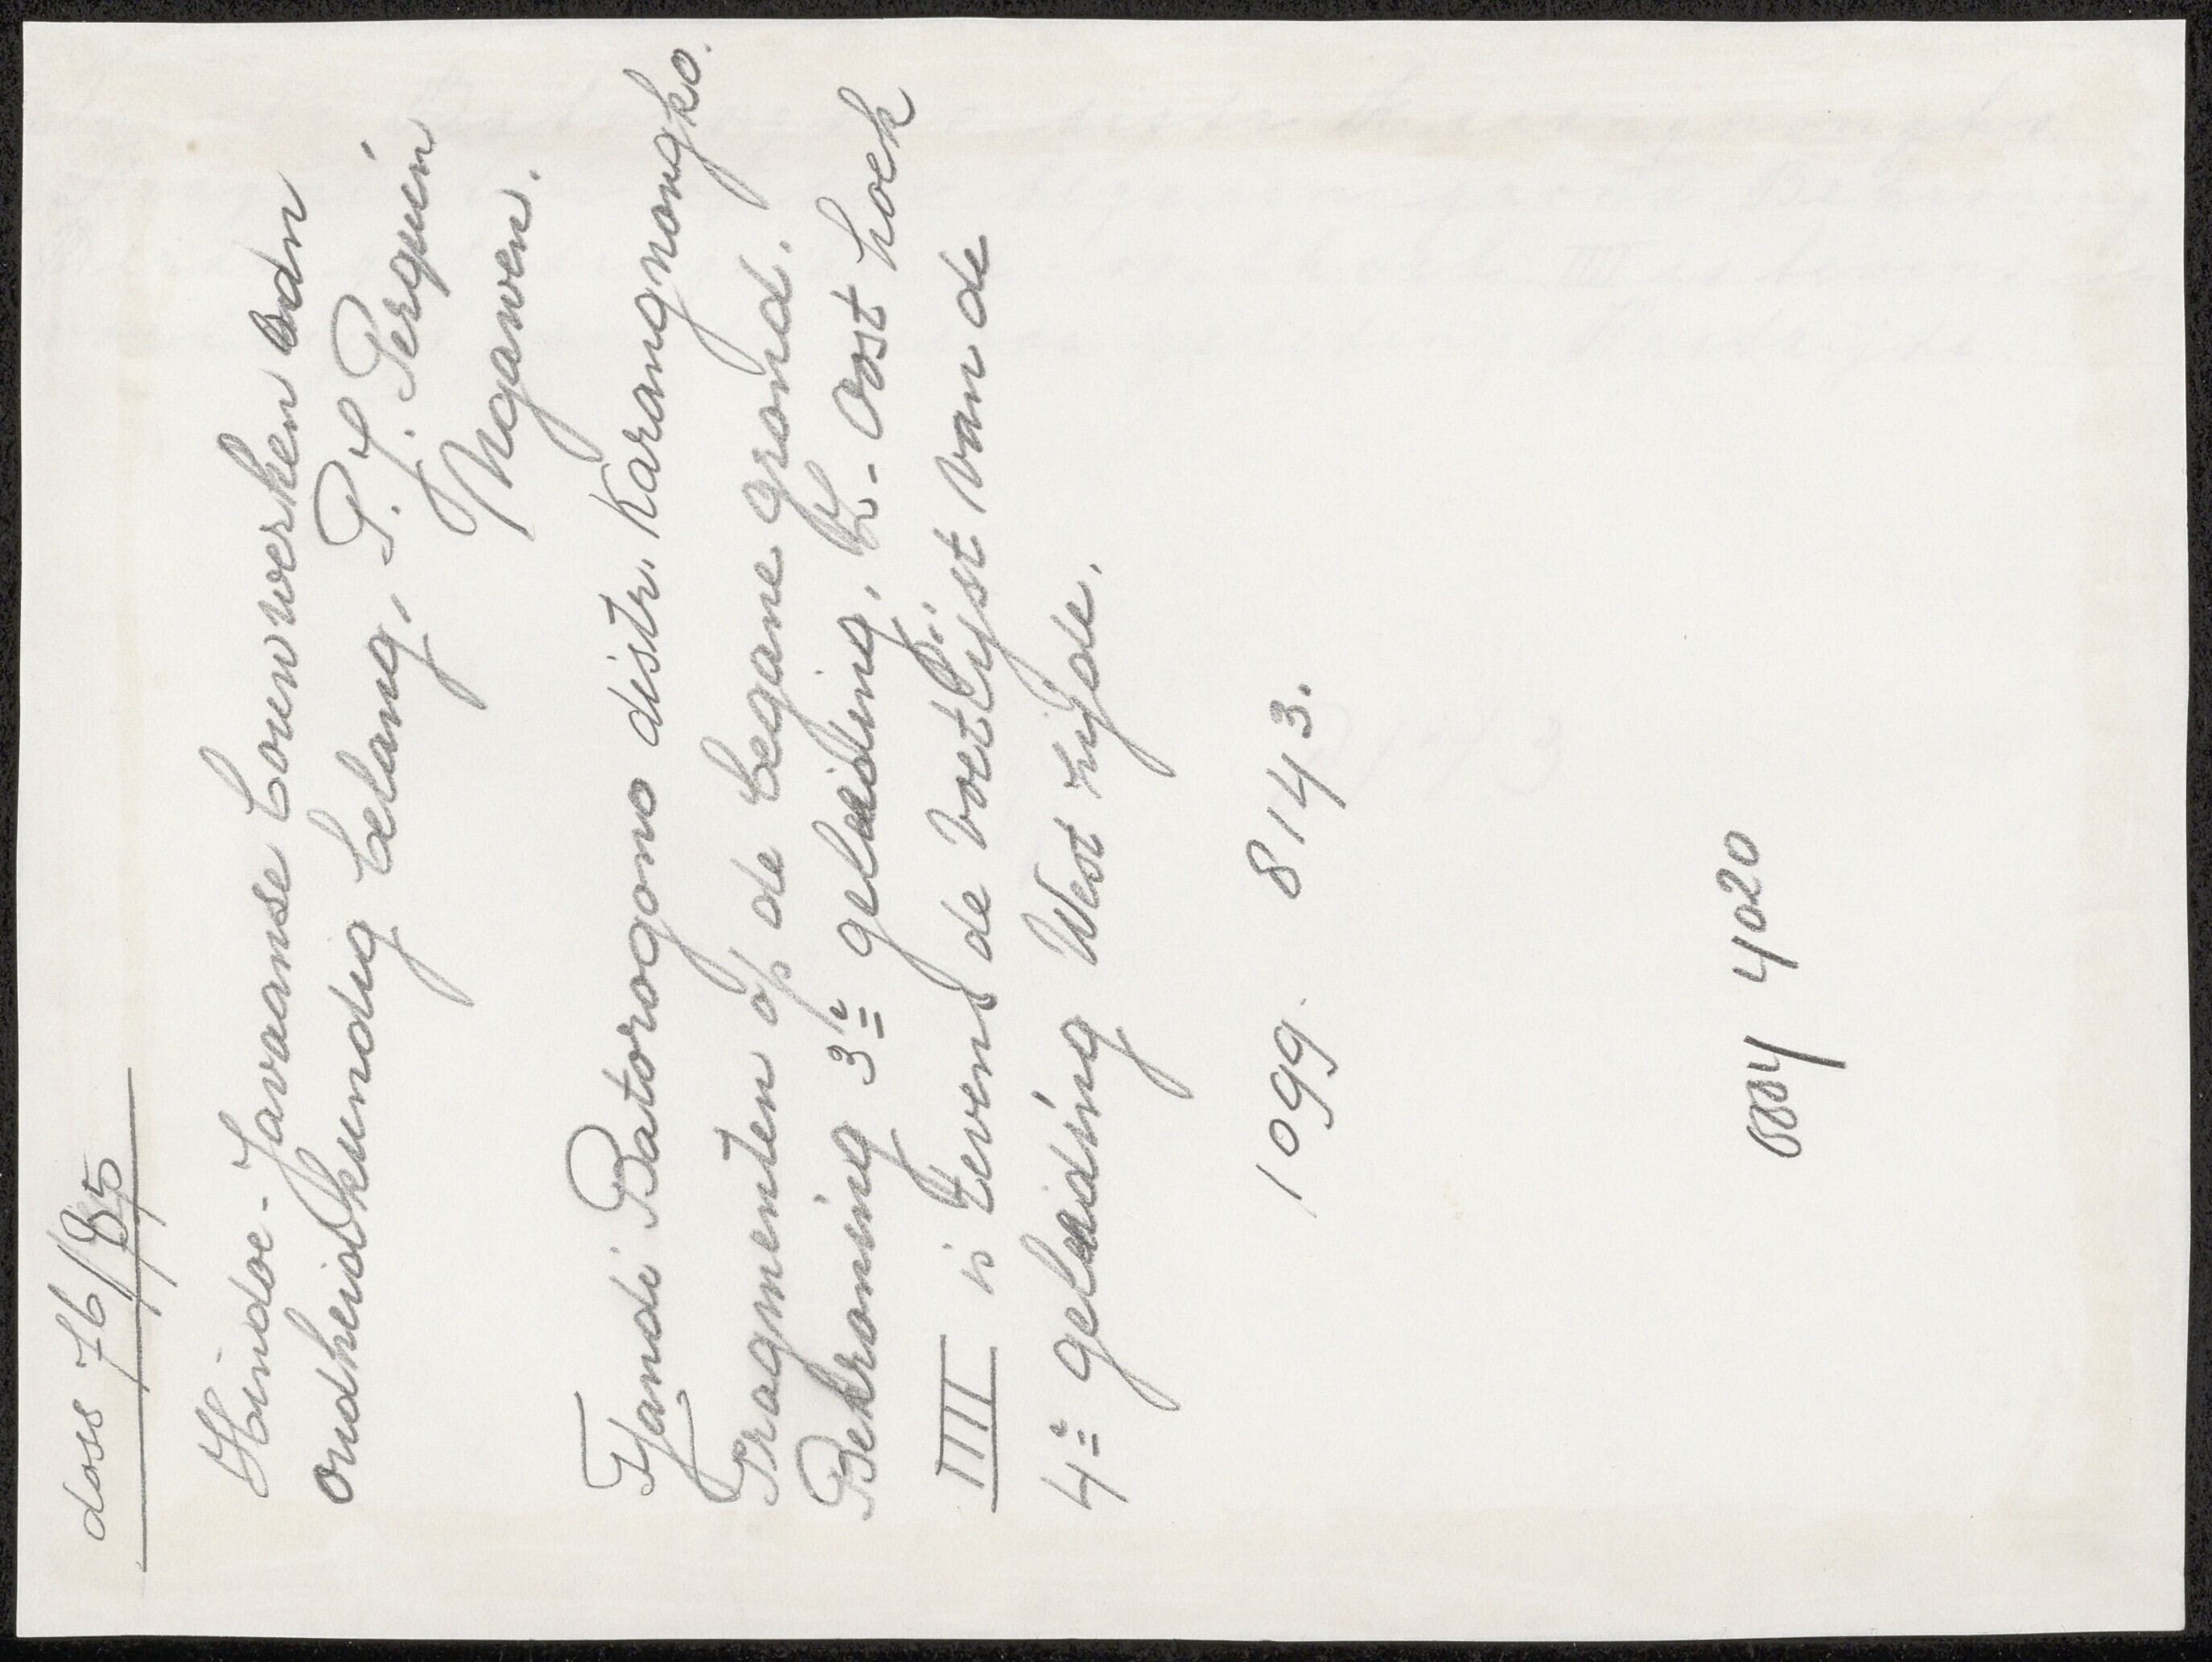 doss 76/85
Hindoe-Javaanse bouwwerken van
oudheidkundig belang, P. J. Perquin
Ngawen.
Tjandi Batorogono distr. Karangnongko.
Fragmenten op de begane grond.
Bekroning 3e geleding, Z.-Oost hoek
IIII is tevens de voetlijst van de
4e geleding West zijde.
1099. 8143.
0004 4020